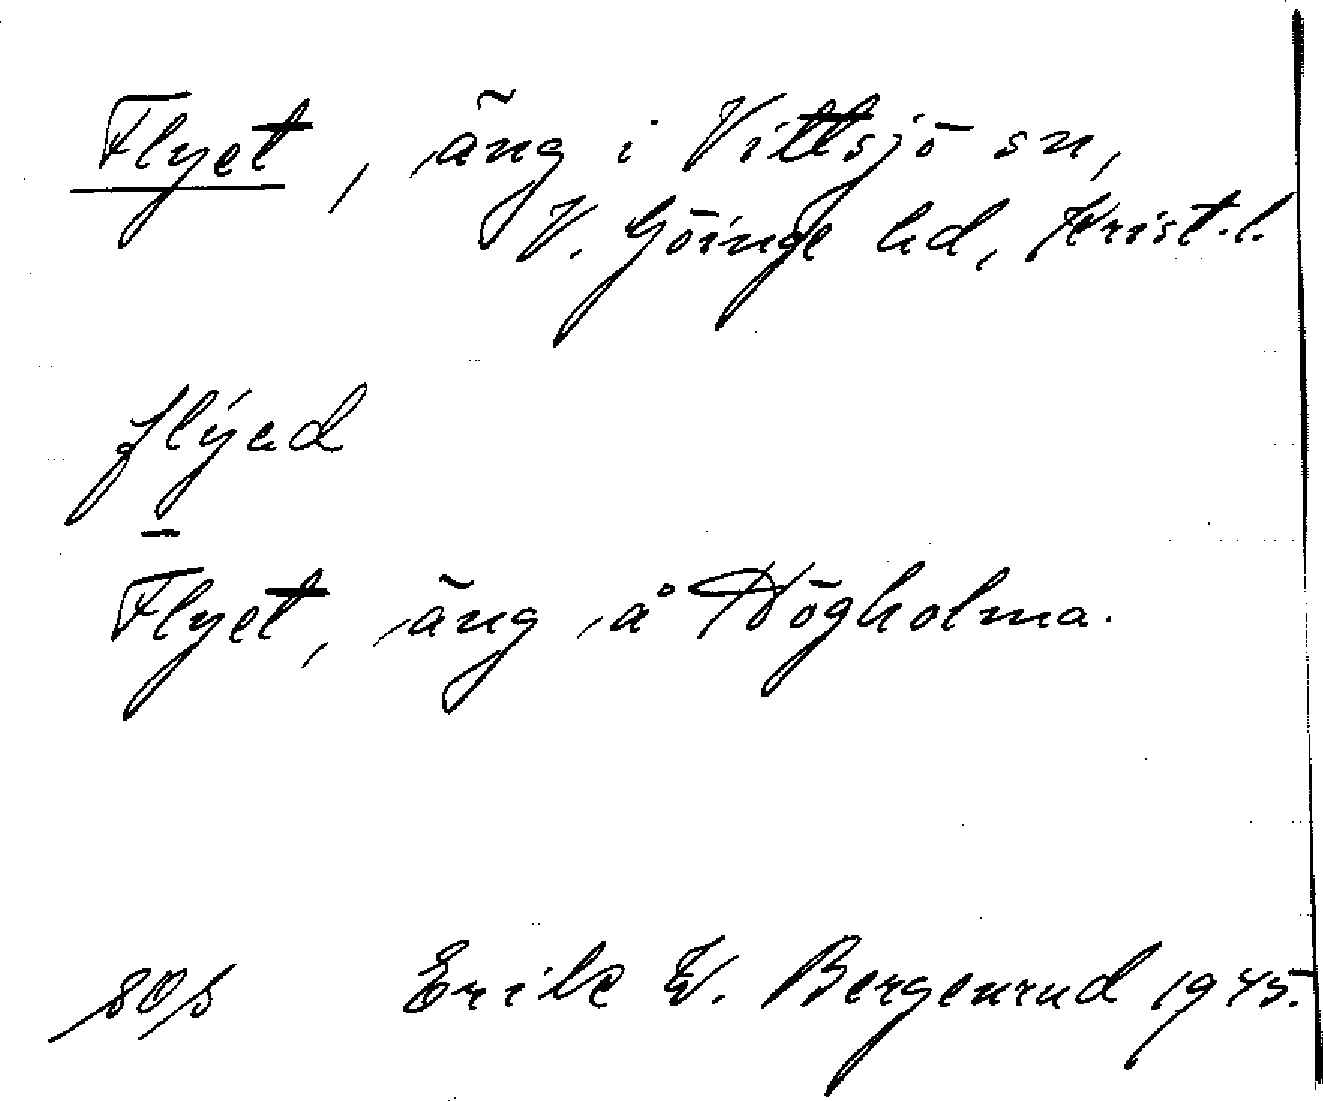 Flyet, äng i Vittsjö sn,
V. Göinge hd, Krist.l.
flýed
Flyet, äng å Högholma.
sep Erik W. Bergenrud 1945.